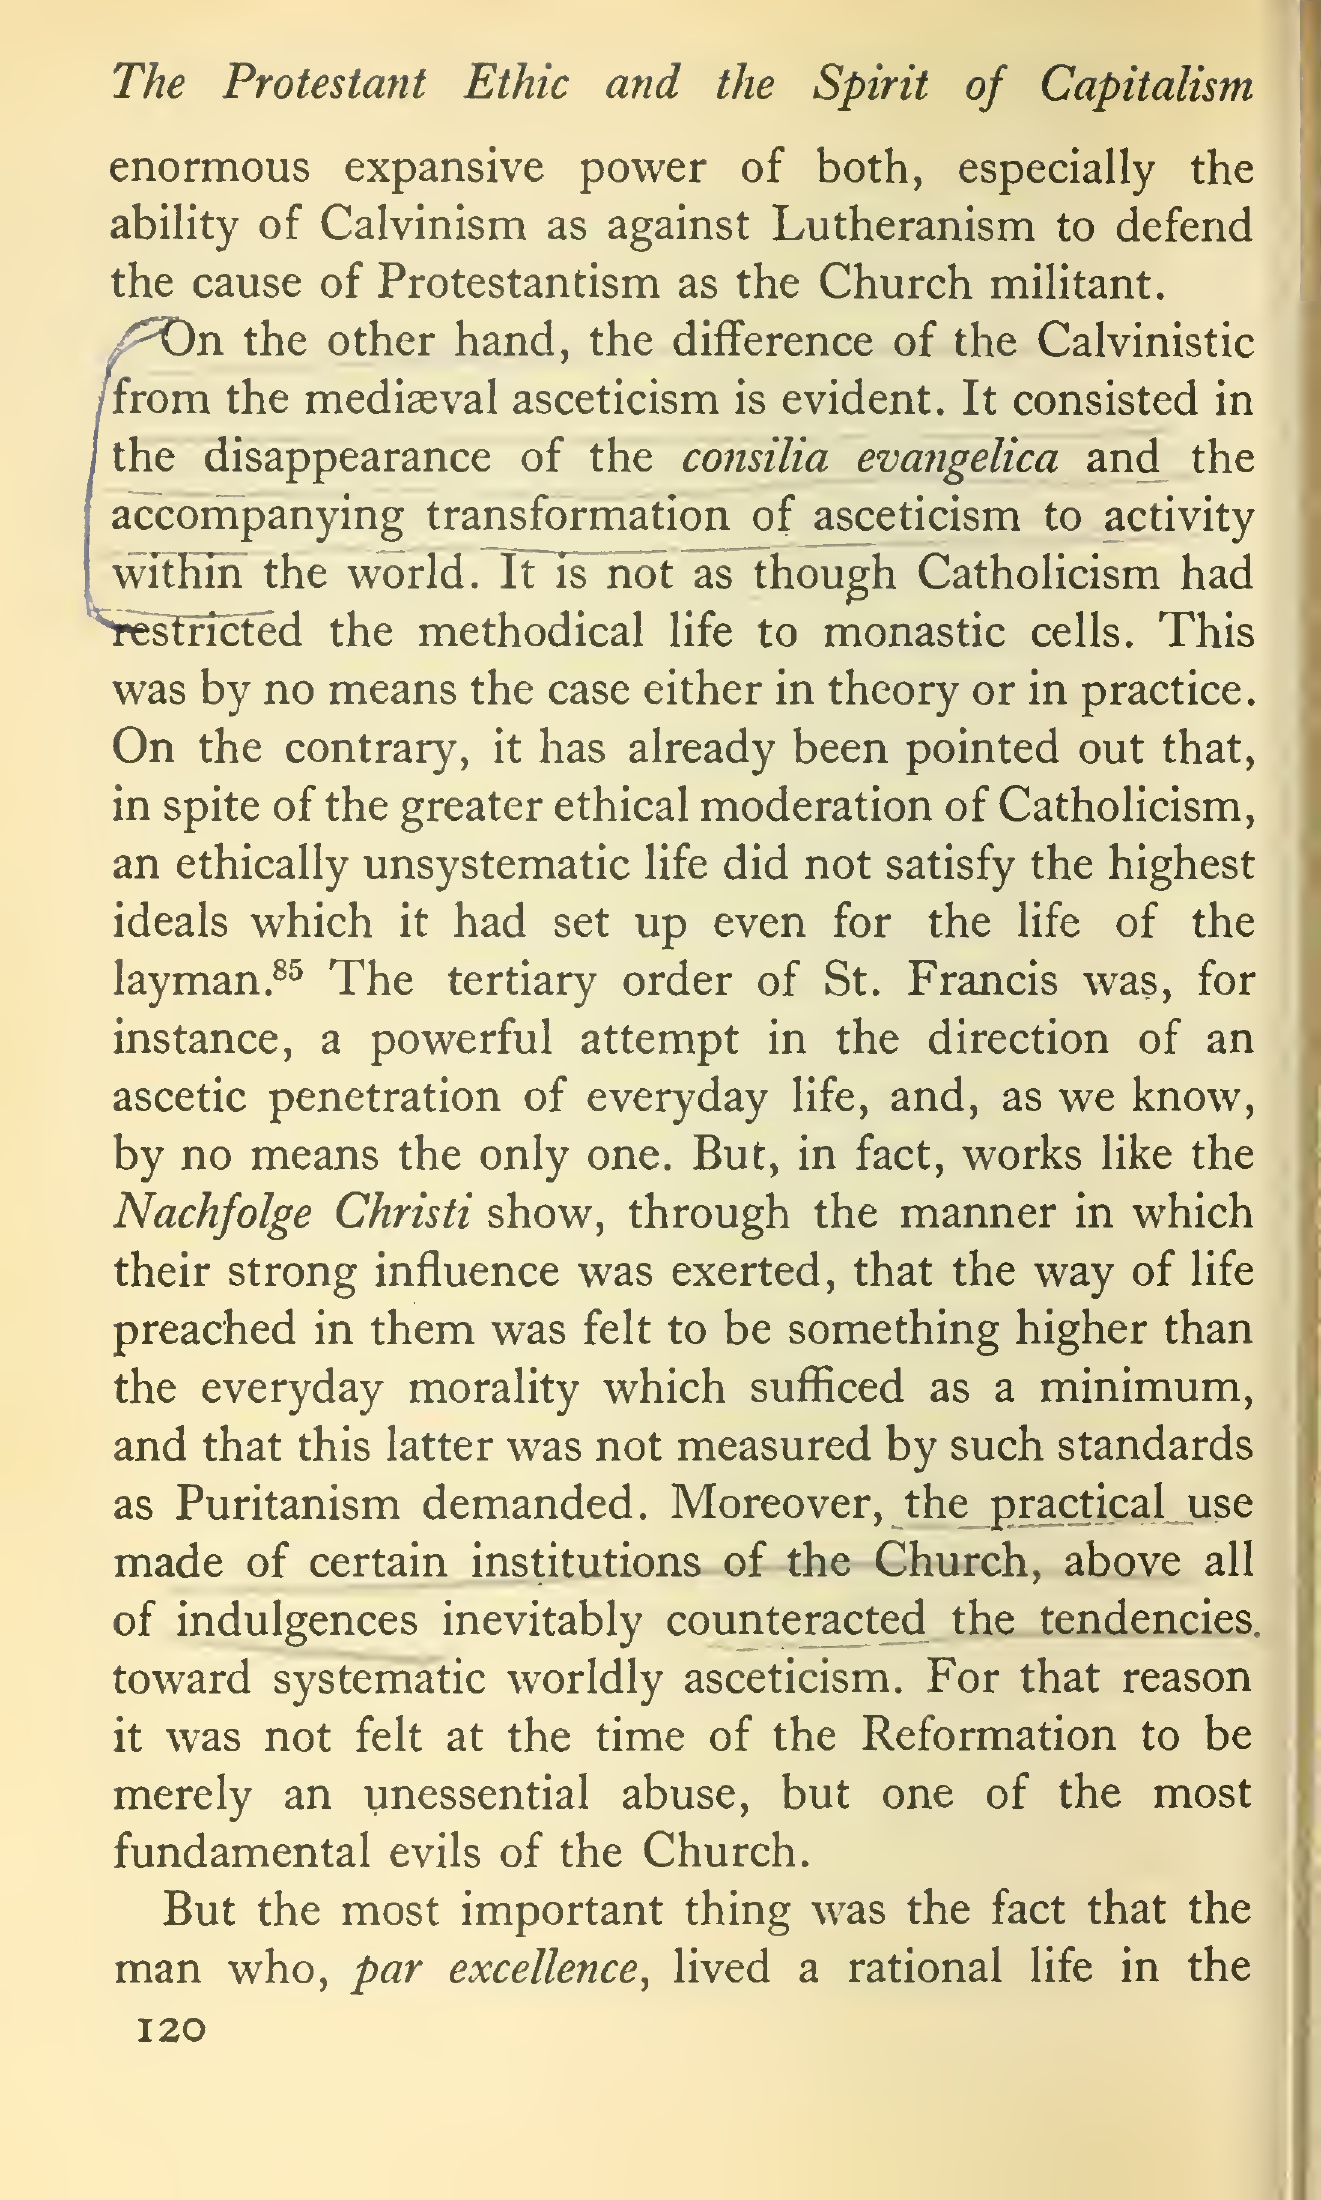 The Protestant Ethic and the Spirit of Capitalism
enormous expansive power of both, especially the
ability of Calvinism as against Lutheranism to defend
the cause of Protestantism as the Church militant.
On the other hand, the difference of the Calvinistic
from the mediæval asceticism is evident. It consisted in
the disappearance of the consilia evangelica and the
accompanying transformation of asceticism to activity
within the world. It is not as though Catholicism had
restricted the methodical life to monastic cells. This
was by no means the case either in theory or in practice.
On the contrary, it has already been pointed out that,
in spite of the greater ethical moderation of Catholicism,
an ethically unsystematic life did not satisfy the highest
ideals which it had set up even for the life of the
layman.⁸⁵ The tertiary order of St. Francis was, for
instance, a powerful attempt in the direction of an
ascetic penetration of everyday life, and, as we know,
by no means the only one. But, in fact, works like the
Nachfolge Christi show, through the manner in which
their strong influence was exerted, that the way of life
preached in them was felt to be something higher than
the everyday morality which sufficed as a minimum,
and that this latter was not measured by such standards
as Puritanism demanded. Moreover, the practical use
made of certain institutions of the Church, above all
of indulgences inevitably counteracted the tendencies
toward systematic worldly asceticism. For that reason
it was not felt at the time of the Reformation to be
merely an unessential abuse, but one of the most
fundamental evils of the Church.
But the most important thing was the fact that the
man who, par excellence, lived a rational life in the
120